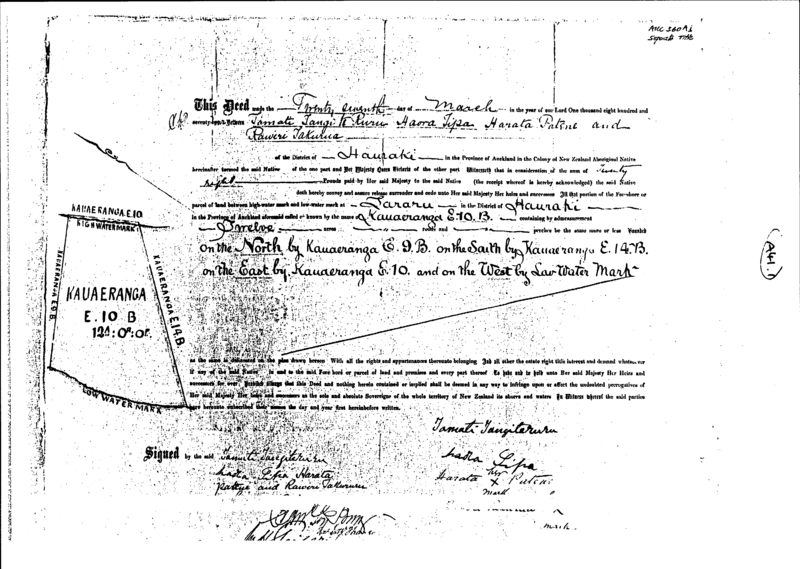 AHC 560 A1
This Deed made the Twenty seventh day of March in the year of our Lord One thousand eight hundred and
seventy Between Tamati Tangi Te Ruru Haora Tipa Harata Patene and
Raweri Takurua
of the District of Hauraki in the Province of Auckland in the Colony of New Zealand Aboriginal Native
hereinafter termed the said Native of the one part and Her Majesty Queen Victoria of the other part Witnesseth that in consideration of the sum of Twenty
eight Pounds paid by Her said Majesty to the said Native (the receipt whereof is hereby acknowledged) the said Native
doth hereby convey and assure release surrender and cede unto Her said Majesty Her heirs and successors All that portion of the Foreshore or
parcel of land between high-water mark and low-water mark at Tararu in the District of Hauraki
in the Province of Auckland aforesaid called or known by the name Kauaeranga E.10.B. containing by admeasurement
Twelve acres roods and perches be the same more or less Bounded
on the North by Kauaeranga E.9.B. on the South by Kauaeranga E.14.B.
on the East by Kauaeranga E.10. and on the West by Low Water Mark
KAUAERANGA E.10
HIGH WATER MARK
KAUAERANGA E 9 B
KAUAERANGA E.14.B
KAUAERANGA
E. 10 B
12A: 0R: 0P.
LOW WATER MARK
(A41.1)
as the same is delineated on the plan drawn hereon With all the rights and appurtenances thereunto belonging And all other the estate right title interest and demand whatsoever
if any of the said Native in and to the said Foreshore or parcel of land and premises and every part thereof To hold and to hold unto Her said Majesty Her Heirs and
successors for ever. Provided always that this Deed and nothing herein contained or implied shall be deemed in any way to infringe upon or affect the undoubted prerogatives of
Her said Majesty Her heirs and successors as the sole and absolute Sovereigns of the whole territory of New Zealand its shores and waters In Witness whereof the said parties
have hereunto subscribed their names the day and year first hereinbefore written.
Tamati Tangiteruru
Signed by the said Tamati Tangiteruru
Haora Tipa Harata
Pattye and Raweri Takururu
Haora Tipa
Harata her x Patene
mark
mark.